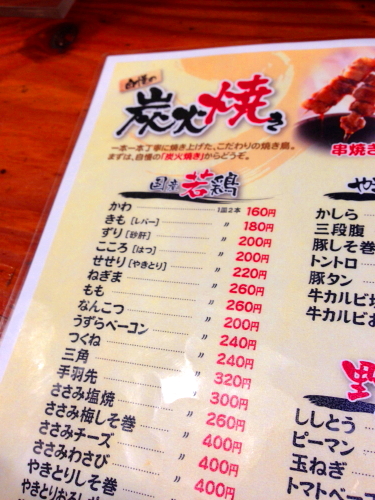 自慢の
炭火焼き
一本一本丁寧に焼き上げた、こだわりの焼き鳥。
まずは、自慢の「炭火焼き」からどうぞ。
国産若鶏
かわ 1皿2本 160円
きも[レバー] 〃 180円
ずり[砂肝] 〃 200円
こころ[はつ] 〃 200円
せせり[やきとり] 〃 220円
ねぎま 〃 260円
もも 〃 260円
なんこつ 〃 200円
うずらベーコン 〃 240円
つくね 〃 240円
三角 〃 320円
手羽先 〃 300円
ささみ塩焼 〃 260円
ささみ梅しそ巻 〃 400円
ささみチーズ 〃 400円
ささみわさび 〃 400円
やきとりしそ巻
串焼き
かしら
三段腹
豚しそ巻
トントロ
豚タン
牛カルビ
牛カルビ
野
ししとう
ピーマン
玉ねぎ
トマトベー